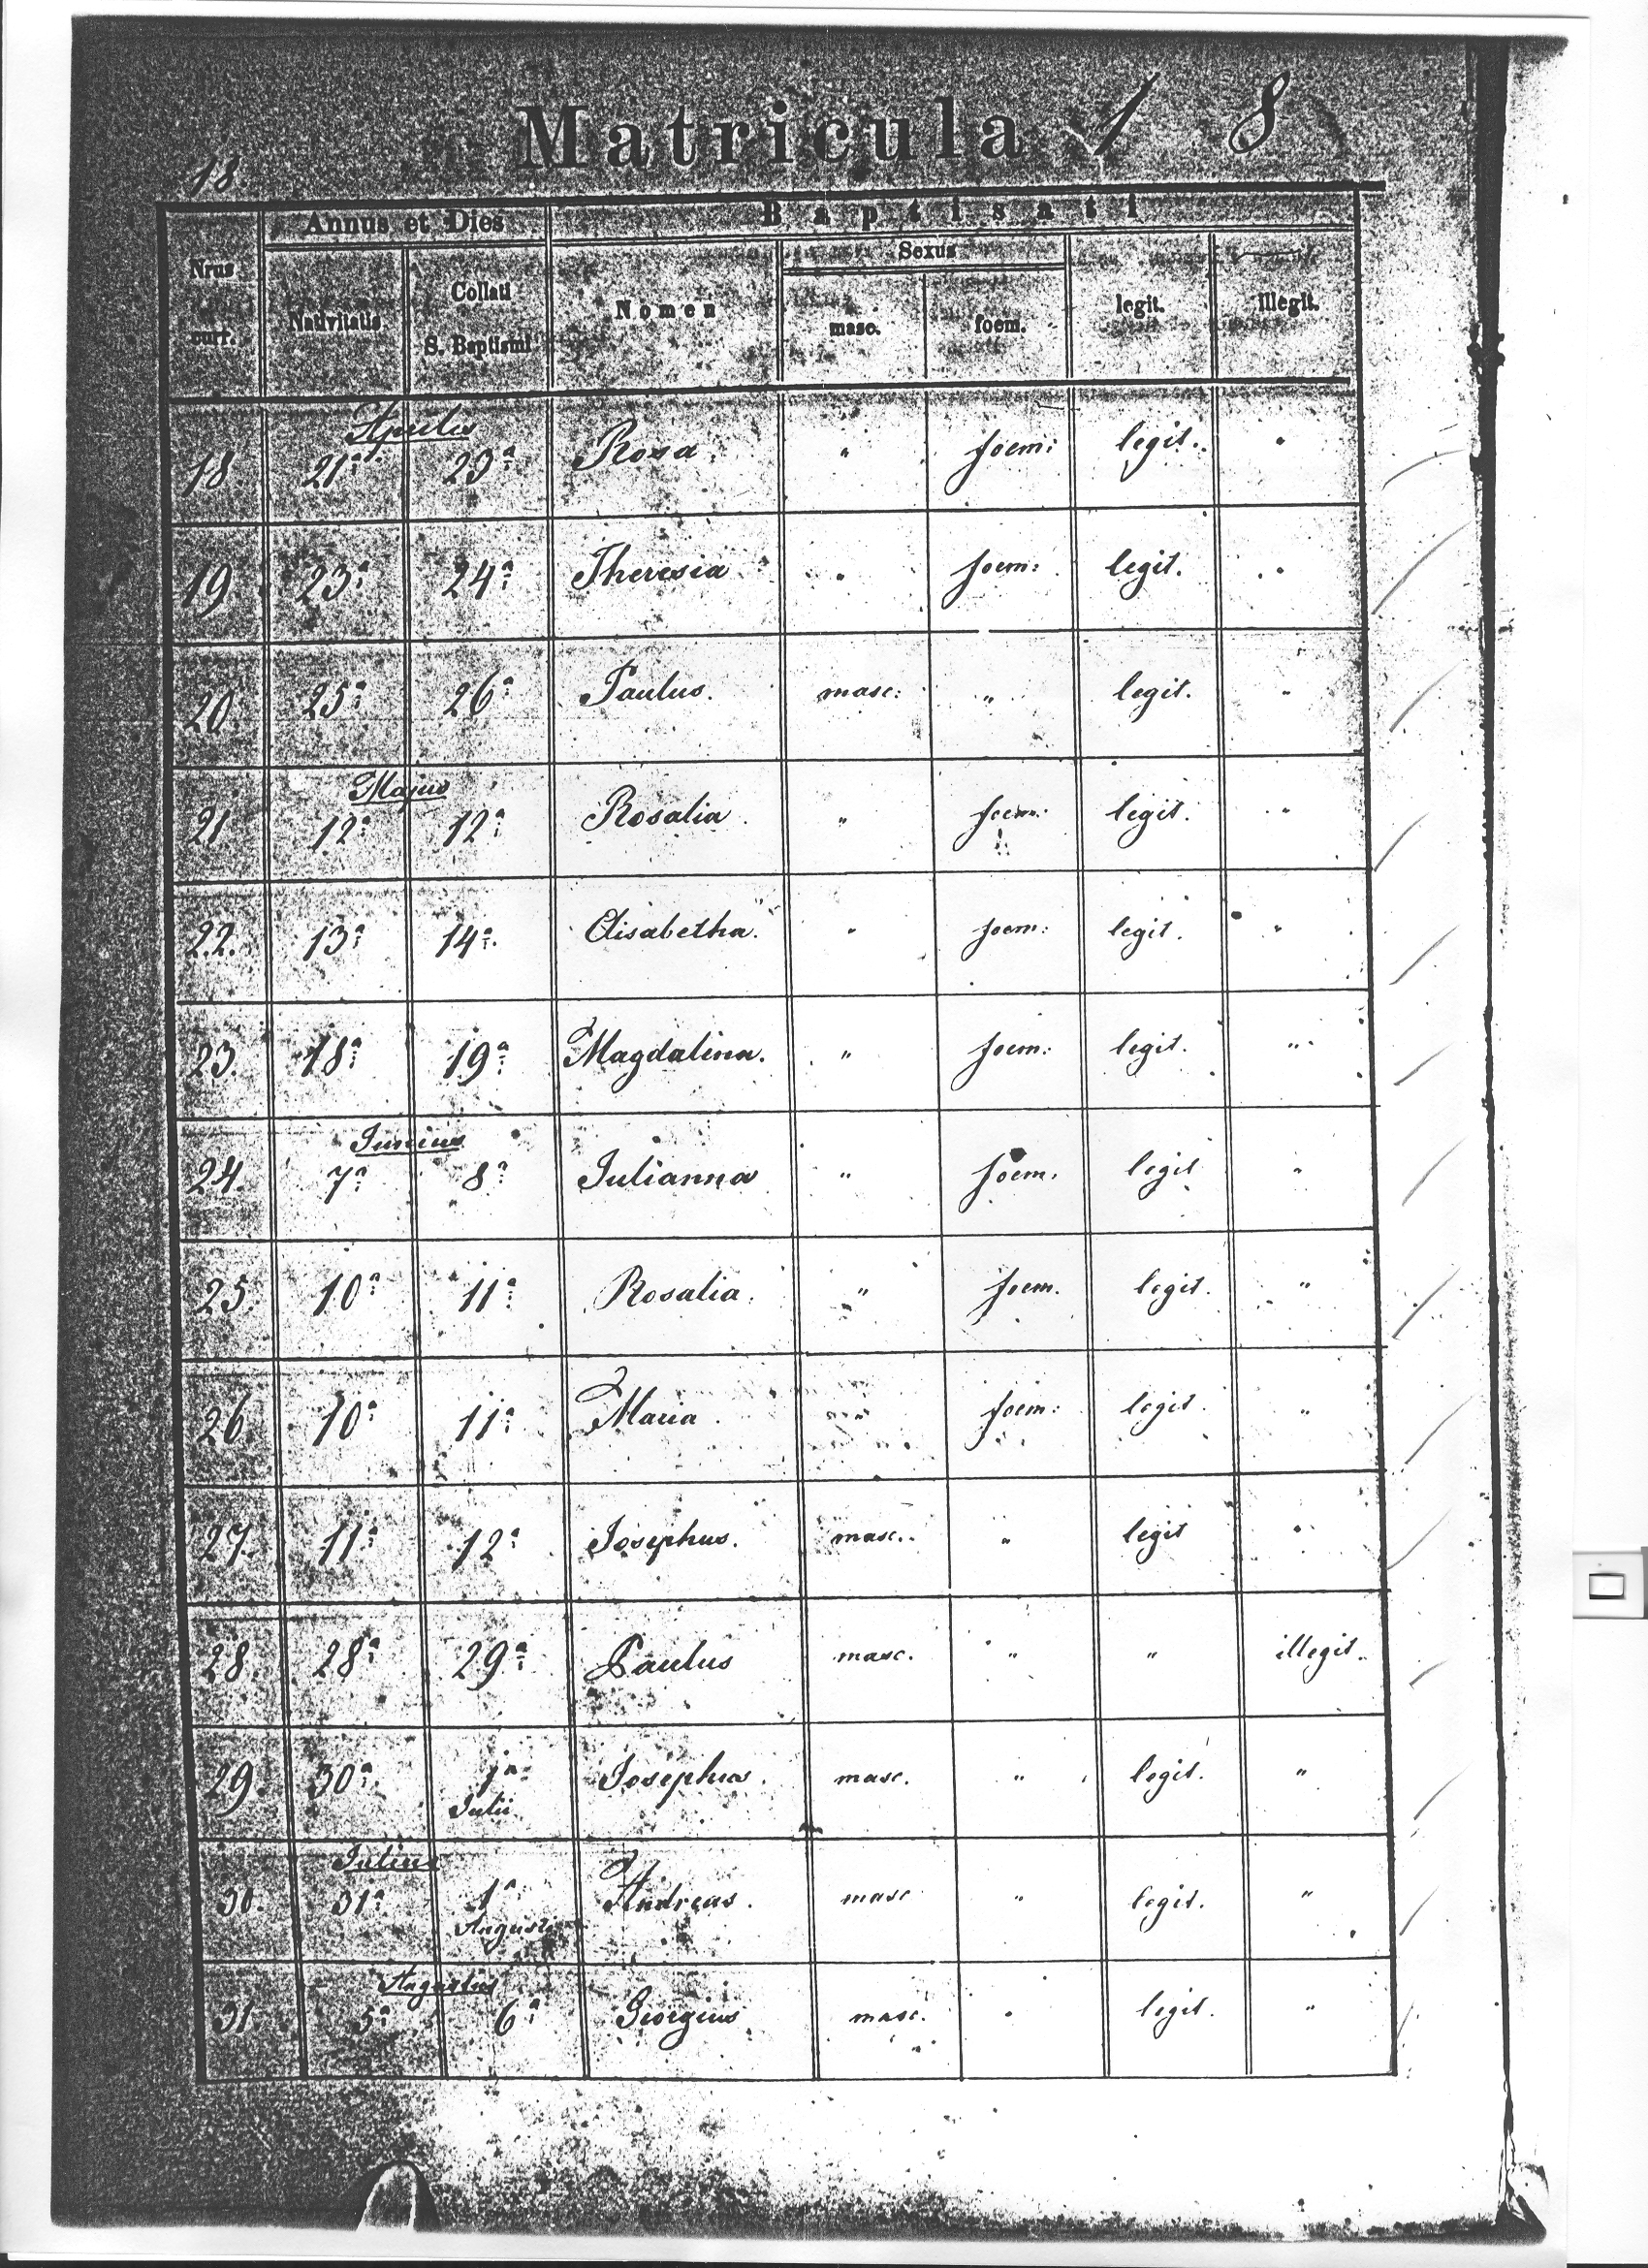 Matricula 1 8
18.
Annus et Dies Baptisati
Nrus curr. Nativitatis Collati S. Baptismi Nomen Sexus masc. foem. legit. illegit.
Aprilis
18. 21a 23a Rosa. " foem: legit. "
19 23a 24a Theresia " foem: legit. "
20. 25a 26a Paulus. masc: " legit. "
Majus
21 12a 12a Rosalia. " foem: legit. "
22. 13a 14a Elisabetha. " foem: legit. "
23. 18a 19a Magdalena. " foem: legit. "
Junius
24. 7a 8a Julianna " foem. legit "
25. 10a 11a Rosalia. " foem. legit. "
26 10a 11a Maria. " foem: legit. "
27. 11a 12a Josephus. masc. " legit "
28. 28a 29a Paulus masc. " " illegit.
29. 30a 1a Julii Josephus. masc. " legit. "
Julius
30. 31a 1a Augusti Andreas. masc " legit. "
Augustus
31. 5a 6a Georgius masc. " legit. "